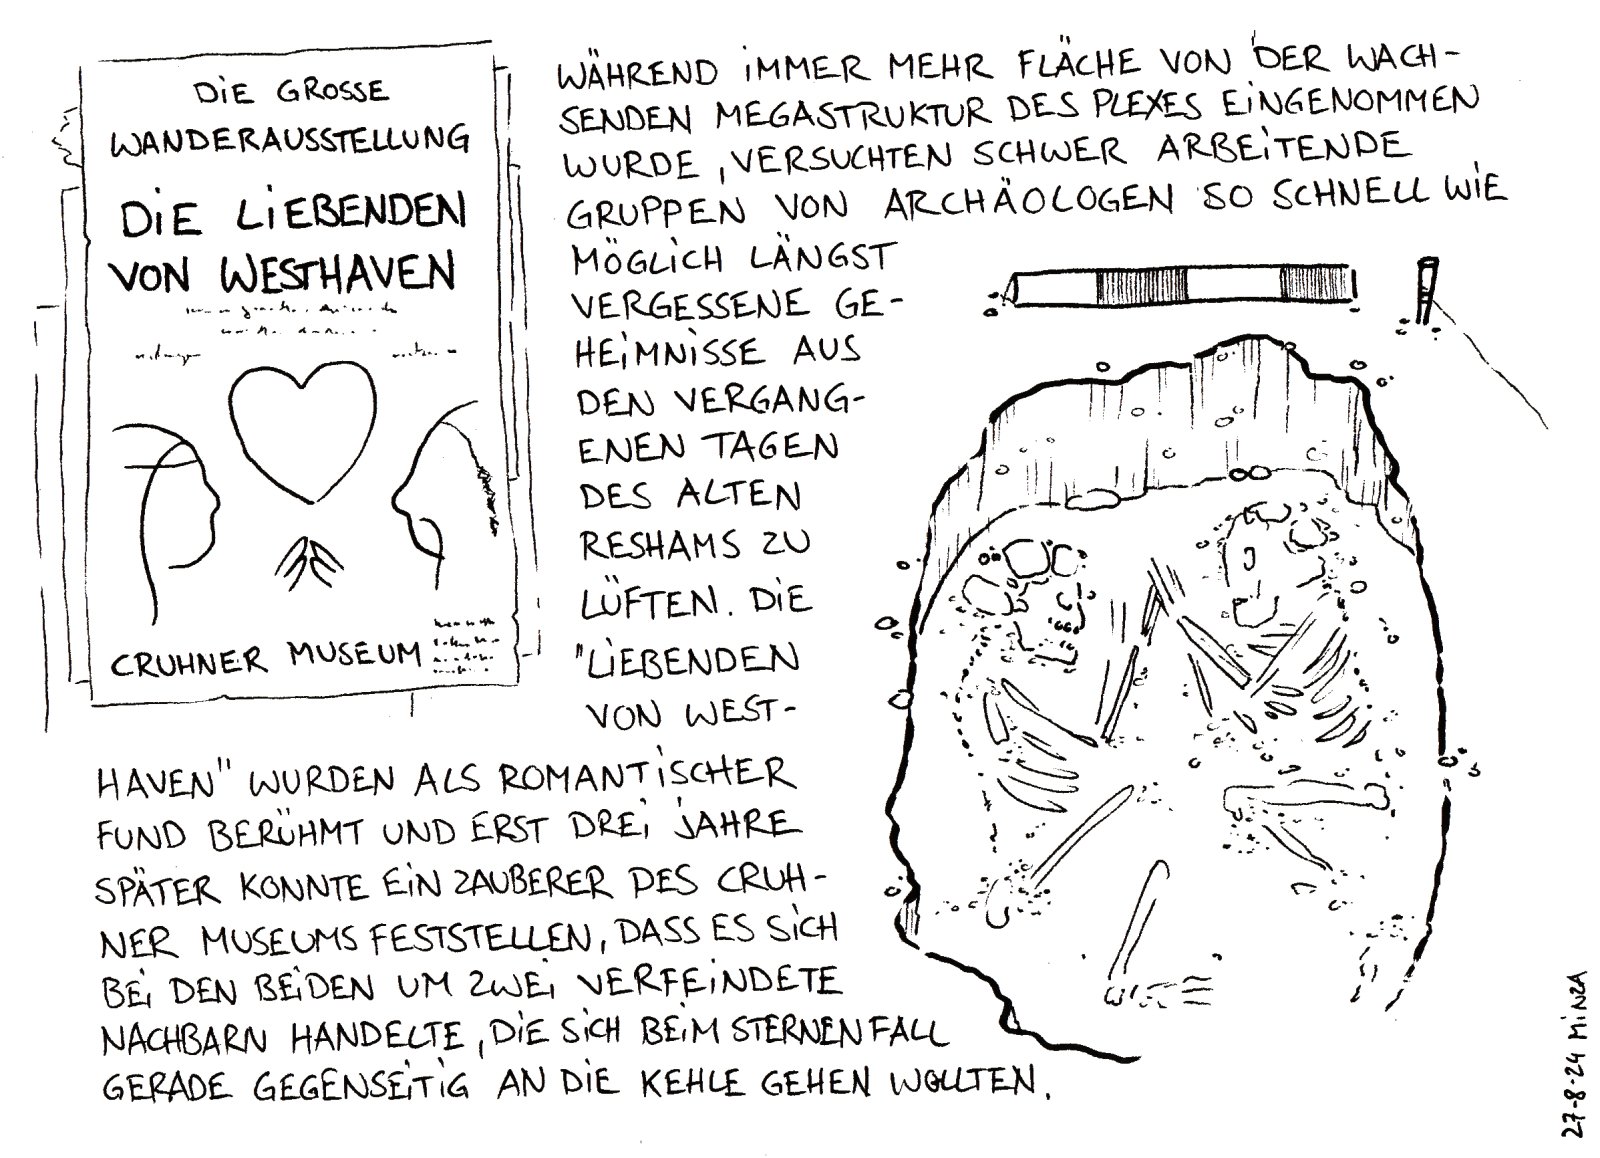 DiE GROSSE
WANDERAUSSTELLUNG
DiE LiEBENDEN
VON WESTHAVEN
CRUHNER MUSEUM
WÄHREND iMMER MEHR FLÄCHE VON DER WACH-
SENDEN MEGASTRUKTUR DES PLEXES EiNGENOMMEN
WURDE, VERSUCHTEN SCHWER ARBEiTENDE
GRUPPEN VON ARCHÄOLOGEN SO SCHNELL WiE
MÖGLiCH LÄNGST
VERGESSENE GE-
HEiMNiSSE AUS
DEN VERGANG-
ENEN TAGEN
DES ALTEN
RESHAMS ZU
LÜFTEN. DiE
"LiEBENDEN
VON WEST-
HAVEN" WURDEN ALS ROMANTiSCHER
FUND BERÜHMT UND ERST DREi JAHRE
SPÄTER KONNTE EiN ZAUBERER DES CRUH-
NER MUSEUMS FESTSTELLEN, DASS ES SiCH
BEi DEN BEiDEN UM ZWEi VERFEiNDETE
NACHBARN HANDELTE, DiE SiCH BEiM STERNENFALL
GERADE GEGENSEiTiG AN DiE KEHLE GEHEN WOLLTEN.
27-8-24 MiNZA